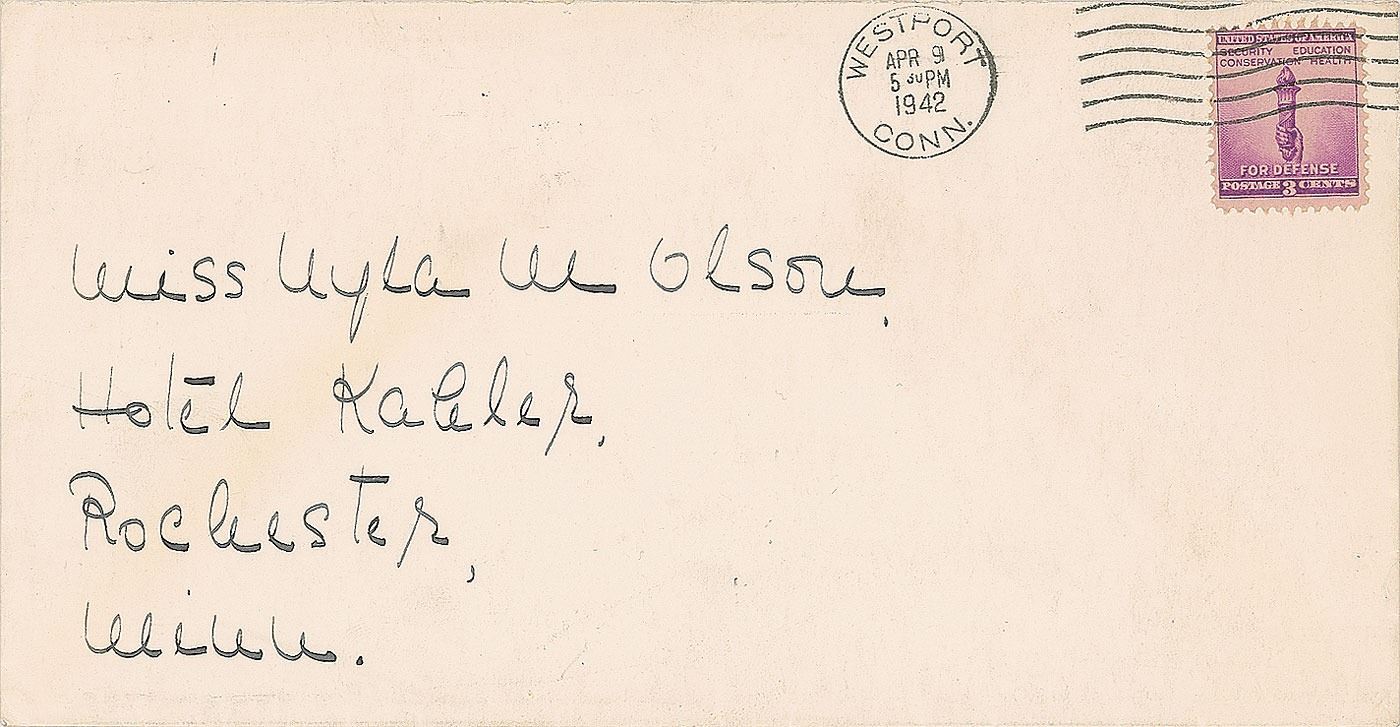 WESTPORT
APR 9
5 30 PM
1942
CONN.
UNITED STATES OF AMERICA
SECURITY EDUCATION
CONSERVATION HEALTH
FOR DEFENSE
POSTAGE 3 CENTS
Miss Nyla M Olson,
Hotel Kahler,
Rochester,
Minn.